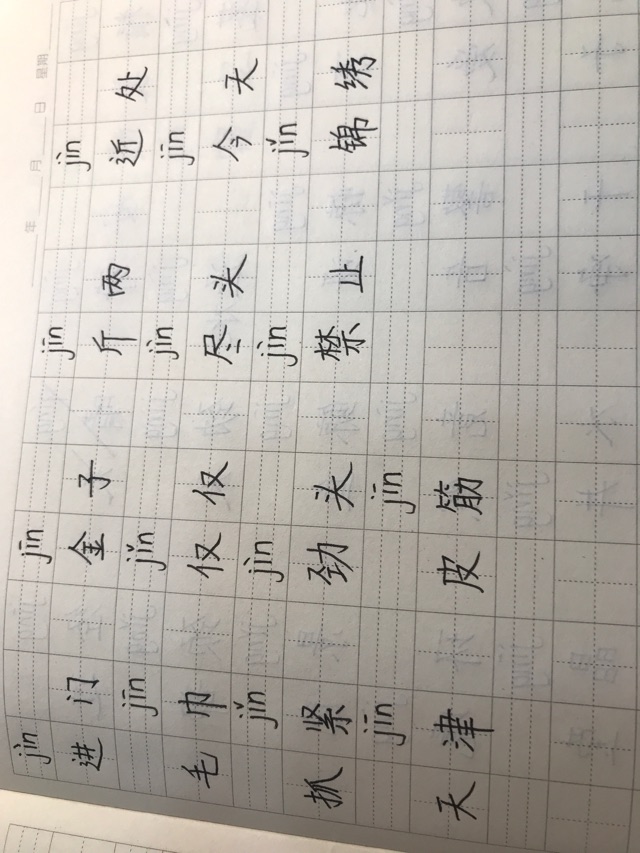 年 月 日
jìn jīn jīn jìn
进门 金子 斤两 近处
jīn jǐn jìn jīn
毛巾 仅仅 尽头 今天
jǐn jìn jìn jǐn
抓紧 劲头 禁止 锦绣
jīn jīn
天津 皮筋